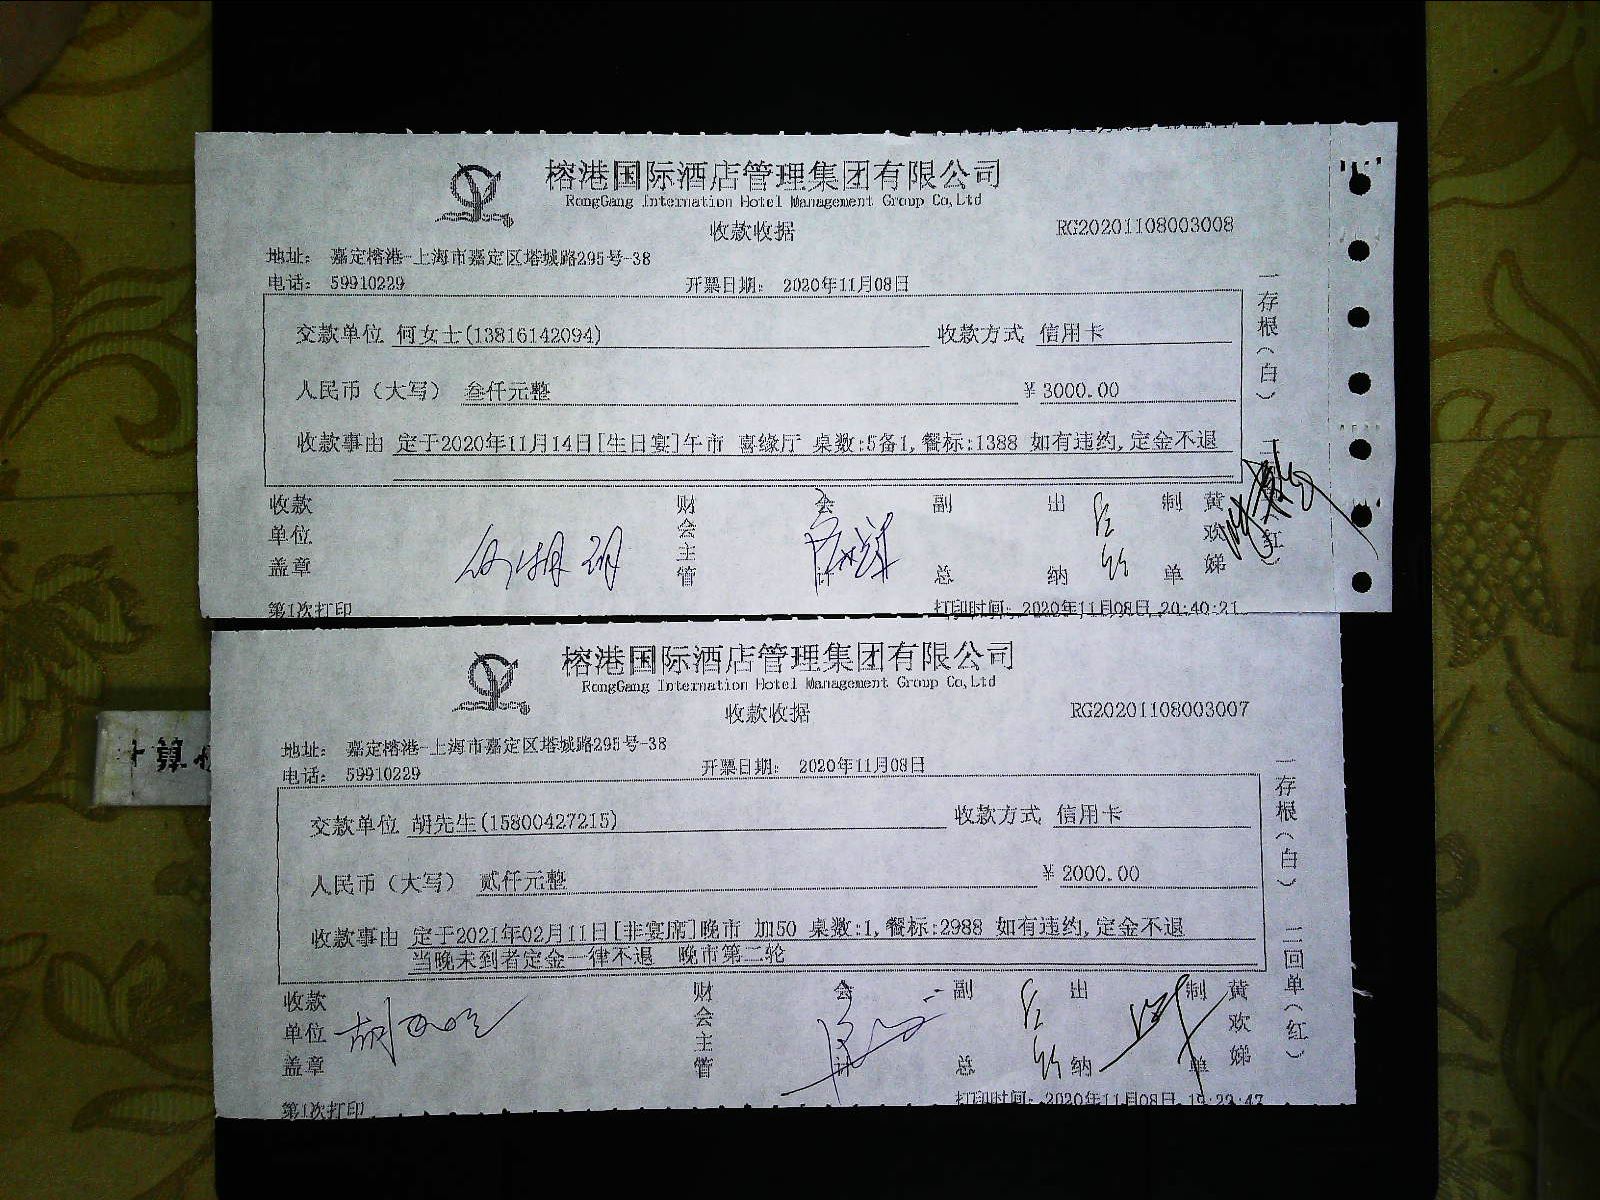 榕港国际酒店管理集团有限公司
RongGang Internation Hotel Management Group Co,Ltd
收款收据
RG20201108003008
地址： 嘉定榕港-上海市嘉定区塔城路295号-38
电话： 59910229 开票日期： 2020年11月08日
交款单位 何女士(13816142094) 收款方式 信用卡
人民币（大写） 叁仟元整 ￥3000.00
收款事由 定于2020年11月14日[生日宴]午市 喜缘厅 桌数:5备1,餐标:1388 如有违约,定金不退
收款单位盖章 财会主管 会计 副总 出纳 制单 黄欢娣
一存根（白）
第1次打印 打印时间: 2020年11月08日 20:40:21
榕港国际酒店管理集团有限公司
RongGang Internation Hotel Management Group Co,Ltd
收款收据
RG20201108003007
地址： 嘉定榕港-上海市嘉定区塔城路295号-38
电话： 59910229 开票日期： 2020年11月08日
交款单位 胡先生(15800427215) 收款方式 信用卡
人民币（大写） 贰仟元整 ￥2000.00
收款事由 定于2021年02月11日[非宴席]晚市 加50 桌数:1,餐标:2988 如有违约,定金不退
当晚未到者定金一律不退 晚市第二轮
收款单位盖章 财会主管 会计 副总 出纳 制单 黄欢娣
一存根（白） 二回单（红）
第1次打印 打印时间: 2020年11月08日